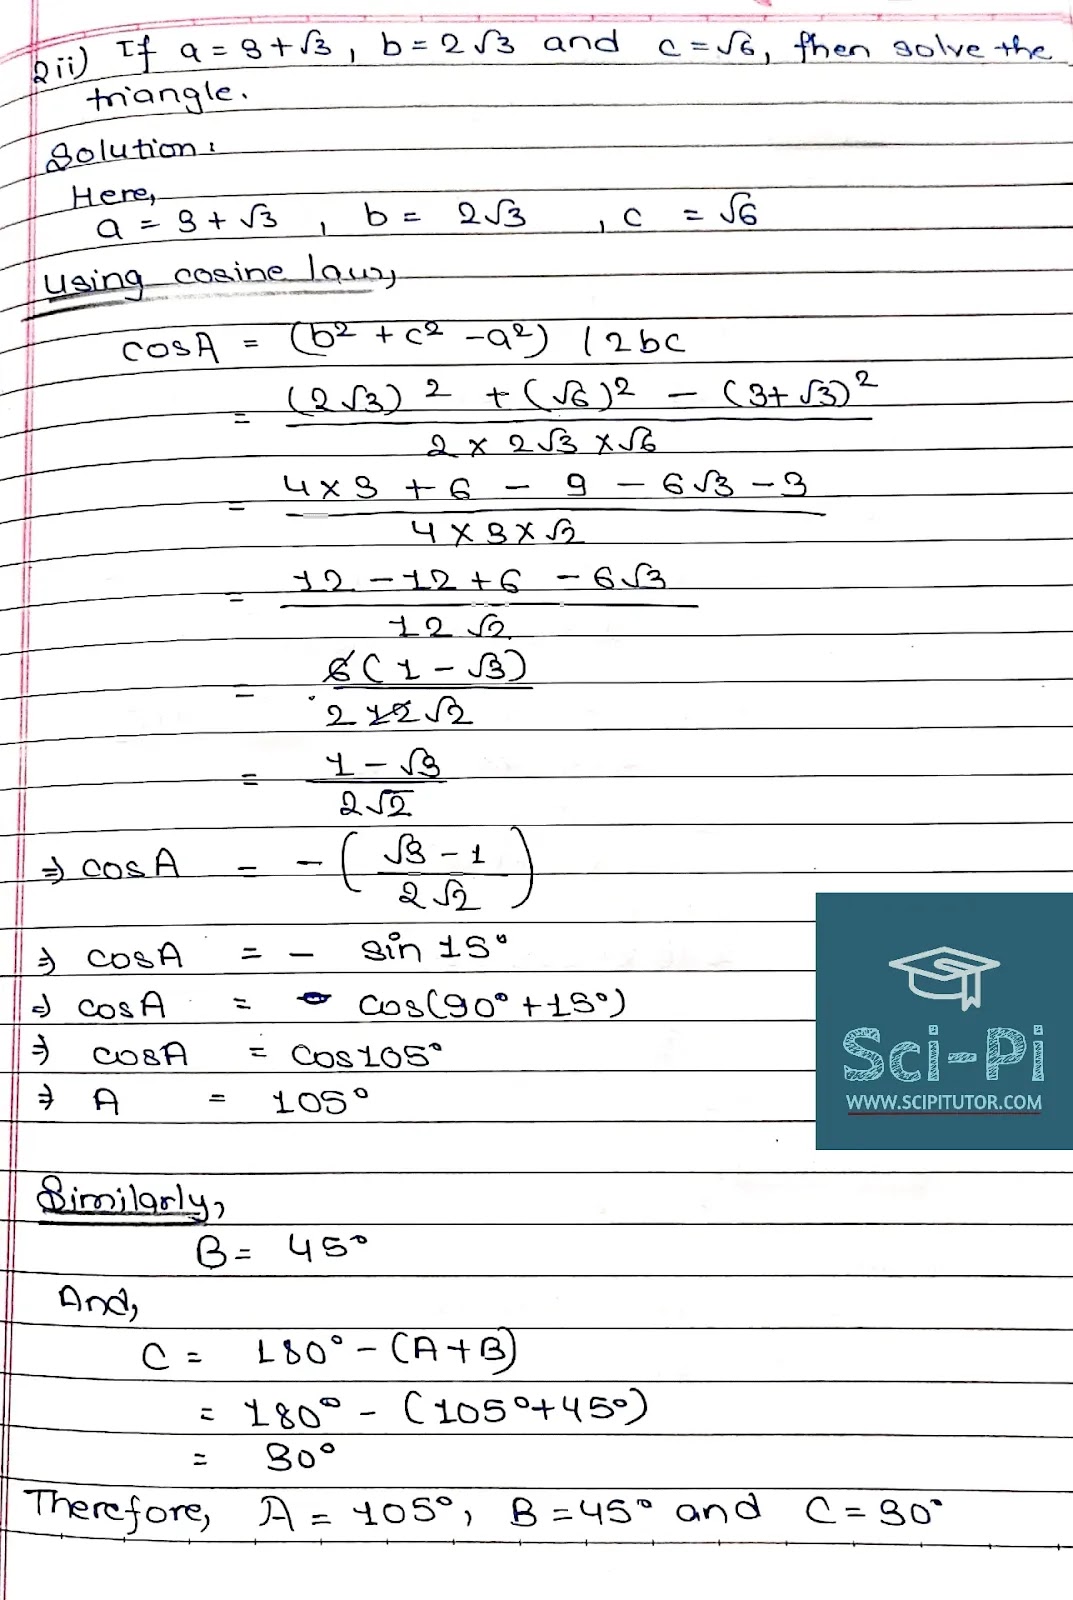 2ii) If a = 3+√3, b = 2√3 and c = √6, then solve the
triangle.
Solution:
Here,
a = 3 + √3 , b = 2√3 , c = √6
Using cosine law,
cosA = (b² + c² - a²) / 2bc
= ((2√3)² + (√6)² - (3+√3)²) / (2 × 2√3 × √6)
= (4×3 + 6 - 9 - 6√3 - 3) / (4×3×√2)
= (12 - 12 + 6 - 6√3) / (12√2)
= 6(1 - √3) / 2 12√2
= (1 - √3) / (2√2)
⇒ cosA = - ((√3 - 1) / (2√2))
⇒ cosA = - sin 15°
⇒ cosA = cos(90° + 15°)
⇒ cosA = cos105°
⇒ A = 105°
Sci-Pi
WWW.SCIPITUTOR.COM
Similarly,
B = 45°
And,
C = 180° - (A+B)
= 180° - (105°+45°)
= 30°
Therefore, A = 105°, B = 45° and C = 30°